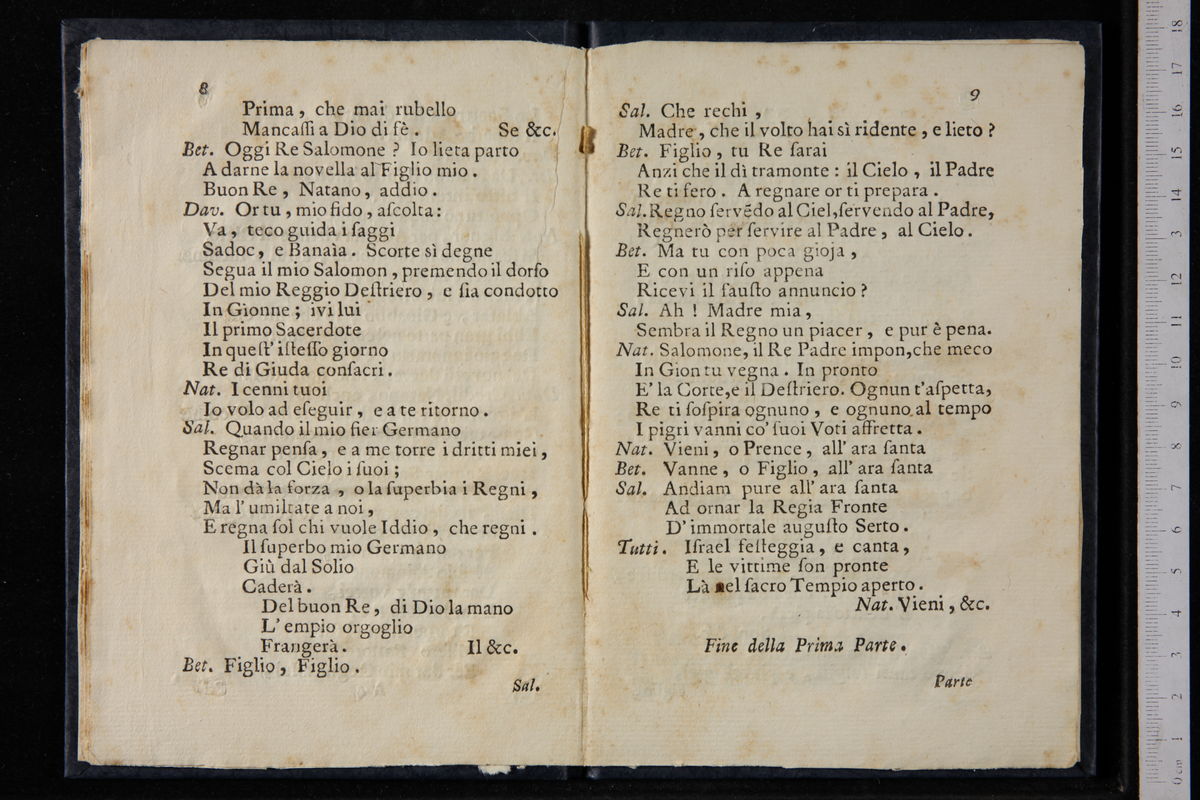 8
Prima, che mai rubello
Mancaſſi a Dio di fè. Se &c.
Bet. Oggi Re Salomone? Io lieta parto
A darne la novella al Figlio mio.
Buon Re, Natano, addio.
Dav. Or tu, mio fido, aſcolta:
Va, teco guida i ſaggi
Sadoc, e Banaìa. Scorte sì degne
Segua il mio Salomon, premendo il dorſo
Del mio Reggio Deſtriero, e ſia condotto
In Gionne; ivi lui
Il primo Sacerdote
In queſt' iſteſſo giorno
Re di Giuda conſacri.
Nat. I cenni tuoi
Io volo ad eſeguir, e a te ritorno.
Sal. Quando il mio fier Germano
Regnar penſa, e a me torre i dritti miei,
Scema col Cielo i ſuoi;
Non dà la forza, o la ſuperbia i Regni,
Ma l' umiltate a noi,
E regna ſol chi vuole Iddio, che regni.
Il ſuperbo mio Germano
Giù dal Solio
Caderà.
Del buon Re, di Dio la mano
L' empio orgoglio
Frangerà. Il &c.
Bet. Figlio, Figlio.
Sal.
9
Sal. Che rechi,
Madre, che il volto hai sì ridente, e lieto?
Bet. Figlio, tu Re ſarai
Anzi che il dì tramonte: il Cielo, il Padre
Re ti fero. A regnare or ti prepara.
Sal. Regno ſervēdo al Ciel, ſervendo al Padre,
Regnerò per ſervire al Padre, al Cielo.
Bet. Ma tu con poca gioja,
E con un riſo appena
Ricevi il fauſto annuncio?
Sal. Ah! Madre mia,
Sembra il Regno un piacer, e pur è pena.
Nat. Salomone, il Re Padre impon, che meco
In Gion tu vegna. In pronto
E' la Corte, e il Deſtriero. Ognun t'aſpetta,
Re ti ſoſpira ognuno, e ognuno al tempo
I pigri vanni co' ſuoi Voti affretta.
Nat. Vieni, o Prence, all' ara ſanta
Bet. Vanne, o Figlio, all' ara ſanta
Sal. Andiam pure all' ara ſanta
Ad ornar la Regia Fronte
D' immortale auguſto Serto.
Tutti. Iſrael feſteggia, e canta,
E le vittime ſon pronte
Là nel ſacro Tempio aperto.
Nat. Vieni, &c.
Fine della Prima Parte.
Parte
0 cm 1 2 3 4 5 6 7 8 9 10 11 12 13 14 15 16 17 18